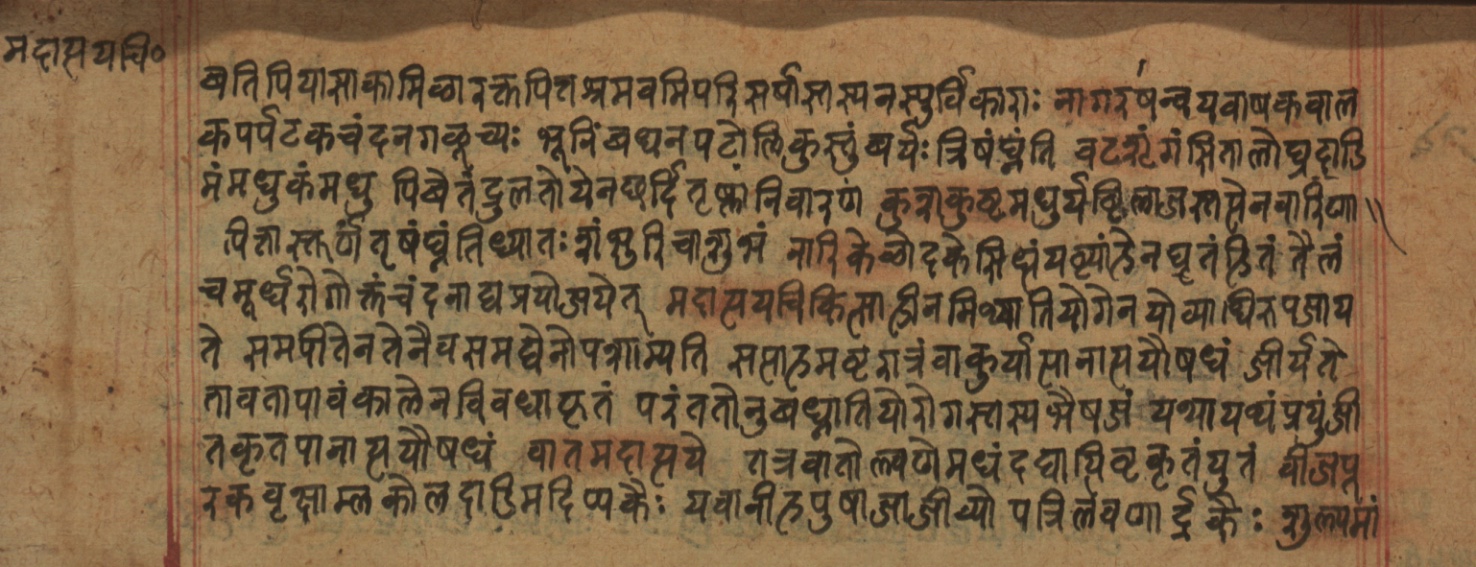 मदात्ययचि०
ष्वतिपिपासाकामिलारक्तपित्तश्रमवमिपरिसर्पास्तस्यनस्युर्विकाराः नागरषन्वयवाषकवाल
कपर्पटकचंदनगळूच्यः भूनिंबघनपटोलिकुस्तुंबर्यः त्रिषंघ्नंति वटशृंगंसितालोध्रदाडि
मंमधुकंमधु पिबेत्तंदुलतोयेनछर्दितृष्णानिवारणं कुत्राकुष्टमधुर्यष्टिलाजस्तसेनवारिणा
पित्तास्तर्णंतृषंघ्नंतिध्यातः शंसुरिचाशुभं नारिकेळोदकेसिद्धंयष्ट्यांठेनघृतंहितं तैलं
चमूर्धरोगोक्तंचंदनाद्यप्रयोजयेत् मदात्ययचिकित्साहीनमिथ्यातियोगेनयोव्याधिरुपजाय
ते समपीतेनतेनैवसमद्येनोपशाम्यति सप्ताहमष्टरात्रंवाकुर्यात्पानात्ययौषधं जीर्यते
तावतापावंकालेनविवधाकृतं परंततोनुबध्नातियोरोगस्तस्यभैषजं यथायथंप्रयुंजी
तकृतपानात्ययौषधं वातमदात्यये तत्रवातोल्वणेमद्यंदद्यात्पिष्टकृतंयुतं बीजपू
रकवृक्षाम्लकोलदाडिमदिप्यकैः यवानीहपुषाजाजीव्यो पत्रिर्लवणार्द्रकैः शुल्यमां